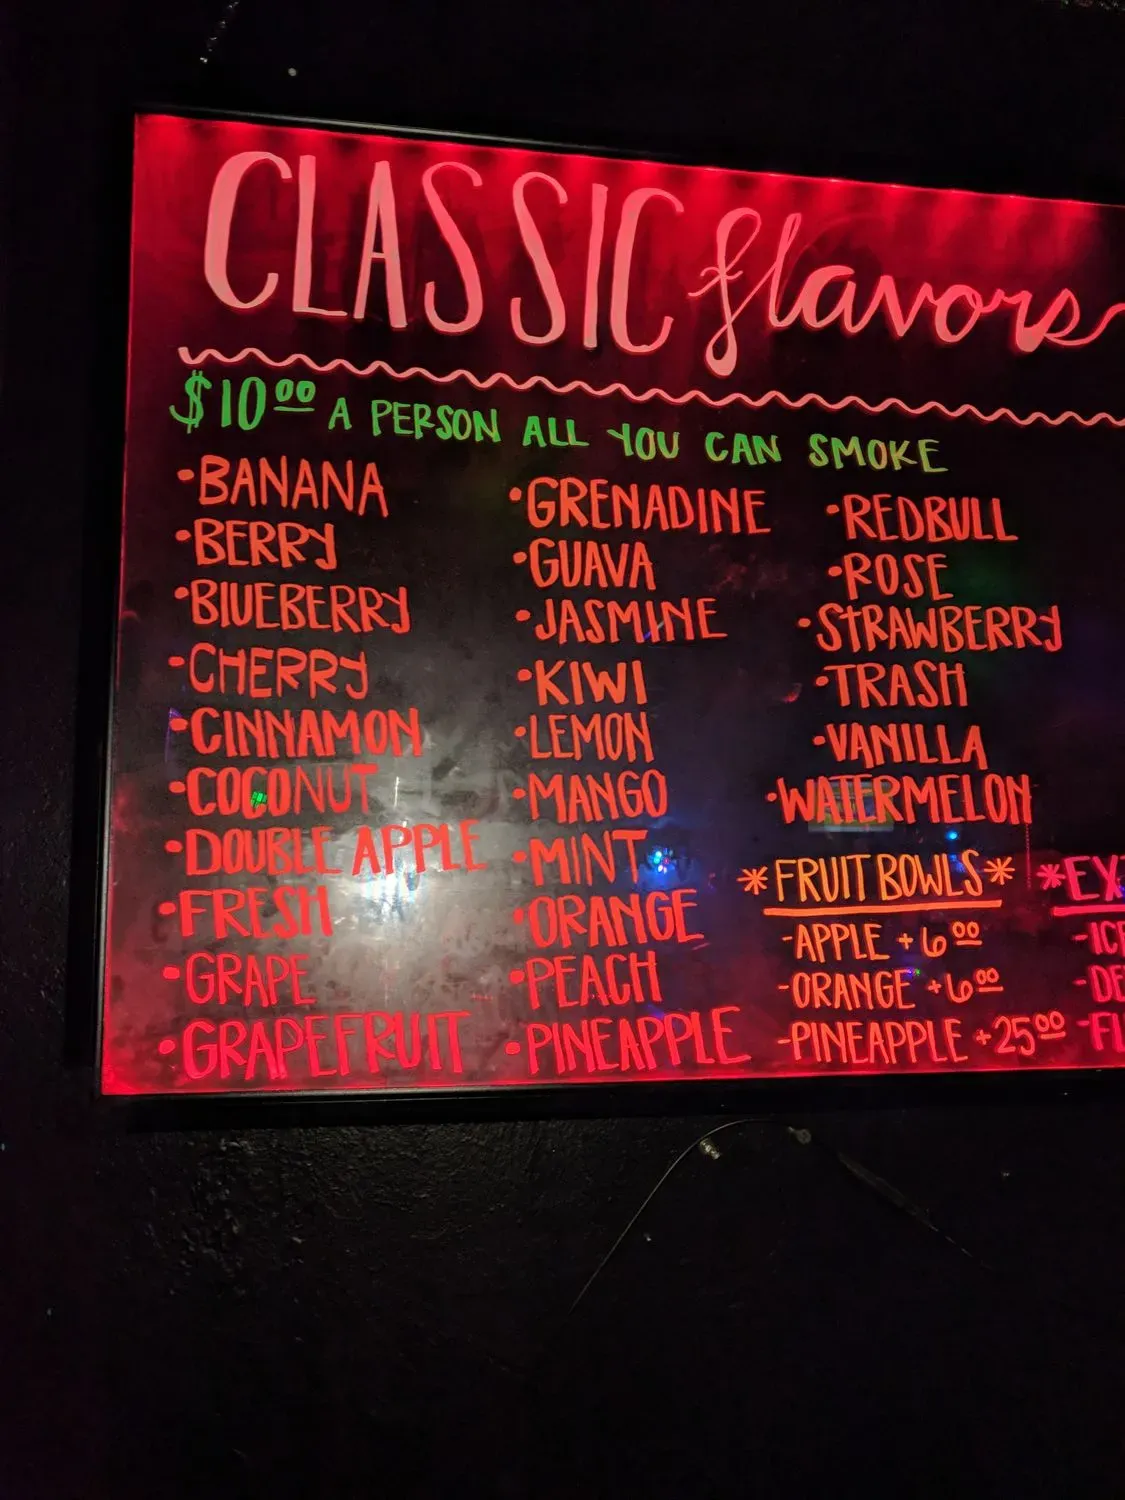 CLASSIC flavors
$10.00 A PERSON ALL YOU CAN SMOKE
•BANANA
•BERRY
•BLUEBERRY
•CHERRY
•CINNAMON
•COCONUT
•DOUBLE APPLE
•FRESH
•GRAPE
•GRAPEFRUIT
•GRENADINE
•GUAVA
•JASMINE
•KIWI
•LEMON
•MANGO
•MINT
•ORANGE
•PEACH
•PINEAPPLE
•REDBULL
•ROSE
•STRAWBERRY
•TRASH
•VANILLA
•WATERMELON
*FRUIT BOWLS*
-APPLE +6.00
-ORANGE +6.00
-PINEAPPLE +25.00